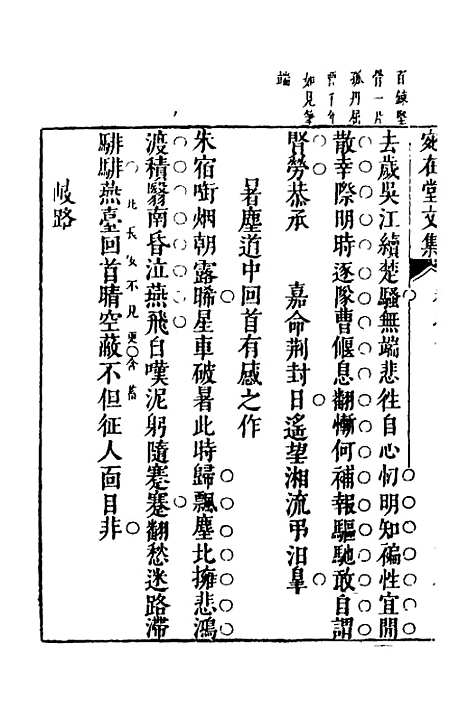 百鍊堅
骨一片
孤丹屈
賈千年
如見筆
端
宛在堂文集
去歲吳江續楚騷無端悲徃自心忉明知褊性宜閒
散幸際明時逐隊曹偃息翻慚何補報驅馳敢自謂
賢勞恭承　嘉命荆封日遙望湘流弔汨臯
暑塵道中回首有感之作
朱宿啣烟朝露晞星車破暑此時歸飄塵北擁悲鴻
渡積翳南昏泣燕飛白嘆泥躬隨蹇蹇翻愁迷路滯
騑騑燕臺回首晴空蔽不但征人面目非
比長安不見更含蓄
岐路